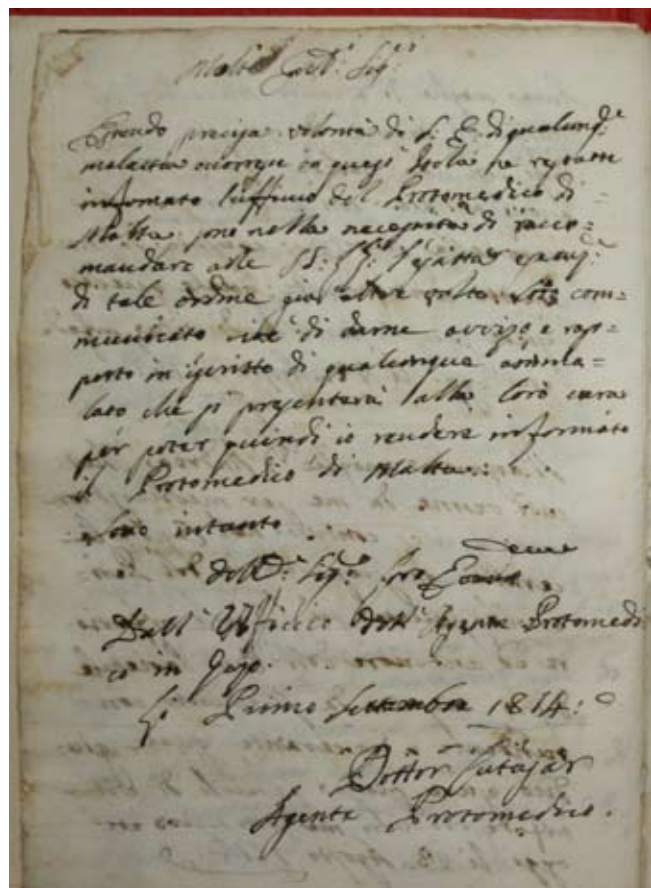 Molto Cart: Sig:ri
Essendo precisa volontà di S. E. di qualunq:e
malattia occorresse in quest' Isola ne restasse
informato l'ufficio del Protomedico di
Malta sono nella necessità di racco=
mandare alle SS: l'esatta
di tale ordine già altre volte com=
municato cioè di darne avviso e rap=
porto in iscritto di qualunque amma=
lato che si presenterà alla loro cura
per poter quindi io rendere informato
il Protomedico di Malta:
sono intanto
Dall' Ufficio dell' Agente Protomedi
co in Gozo.
Li Primo Settembre 1814:
Dottor Cutajar
Agente Protomedico.